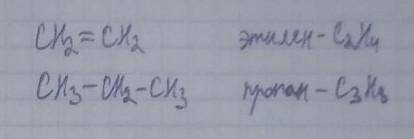 CH₂=CH₂ этилен - C₂H₄
CH₃-CH₂-CH₃ пропан - C₃H₈